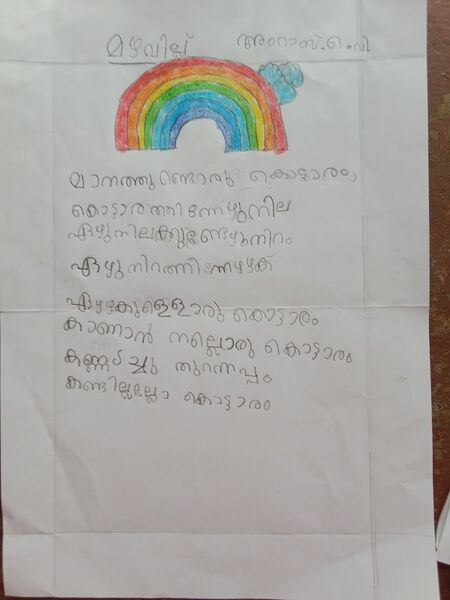 മഴവില്ല് അംറാസ്.ഒ.വി
മാനത്തുണ്ടൊരു കൊട്ടാരം
കൊട്ടാരത്തിന്നേഴുനില
ഏഴുനിലക്കുണ്ടേഴുനിറം
ഏഴുനിറത്തിന്നേഴഴക്
ഏഴഴകുള്ളൊരു കൊട്ടാരം
കാണാൻ നല്ലൊരു കൊട്ടാരം
കണ്ണടച്ചു തുറന്നപ്പം
കണ്ടില്ലല്ലോ കൊട്ടാരം